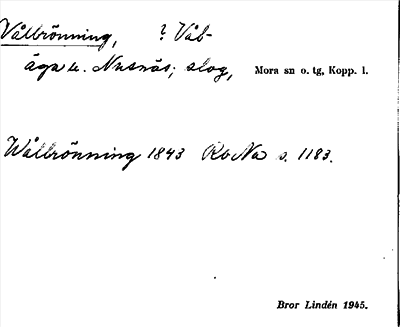 Vållrönning, ? Våb-
äga u. Nusnäs; slog, Mora sn o. tg, Kopp. l.
Wållrönning 1843 RoNa s. 1183.
Bror Lindén 1945.